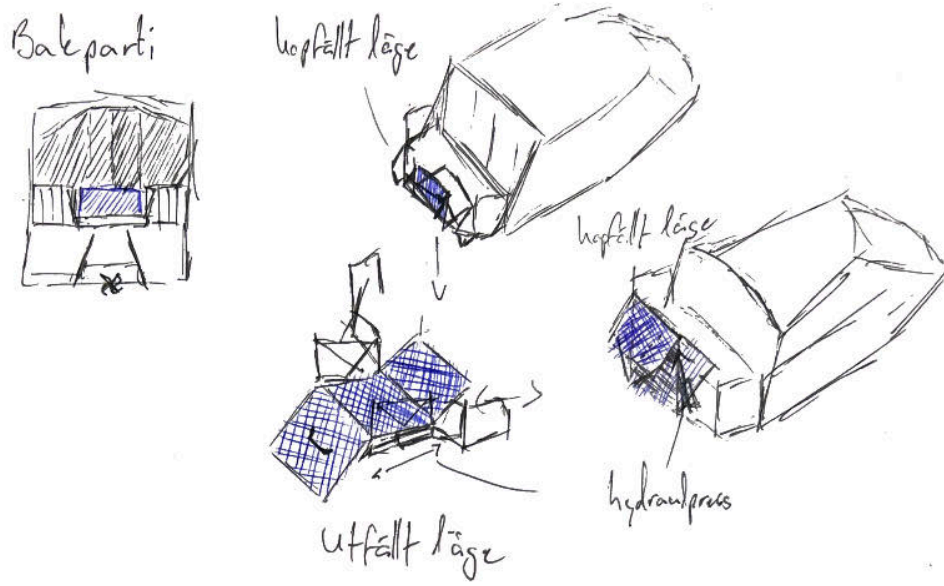 Bakparti
hopfällt läge
hopfällt läge
hydraulpress
utfällt läge